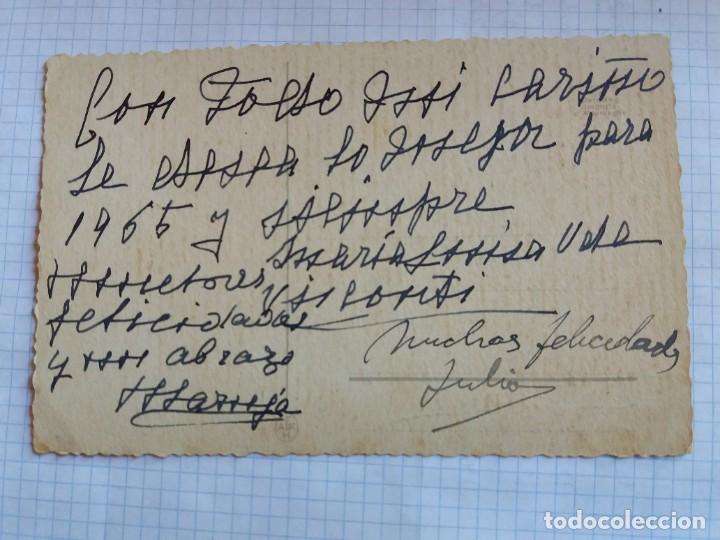 Con todo mi cariño
le desea lo mejor para
1965 y siempre
María Luisa Vda
Visconti
Muchas
felicidades
y un abrazo
Muchas felicidades
Julio
todocoleccion.net